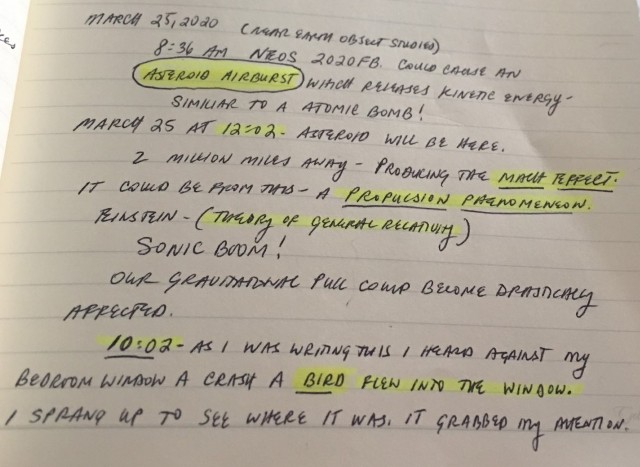 MARCH 25, 2020 (NEAR EARTH OBJECT STUDIES)
8:36 AM NEOS 2020FB. COULD CAUSE AN
ASTEROID AIRBURST WHICH RELEASES KINETIC ENERGY-
SIMILIAR TO A ATOMIC BOMB!
MARCH 25 AT 12:02- ASTEROID WILL BE HERE.
2 MILLION MILES AWAY - PRODUCING THE MACH EFFECT.
IT COULD BE FROM THIS - A PROPULSION PHENOMENEON.
EINSTEIN - (THEORY OF GENERAL RELATIVITY)
SONIC BOOM!
OUR GRAVITATIONAL PULL COULD BECOME DRASTICALLY
AFFECTED.
10:02- AS I WAS WRITING THIS I HEARD AGAINST MY
BEDROOM WINDOW A CRASH A BIRD FLEW INTO THE WINDOW.
I SPRANG UP TO SEE WHERE IT WAS. IT GRABBED MY ATTENTION.